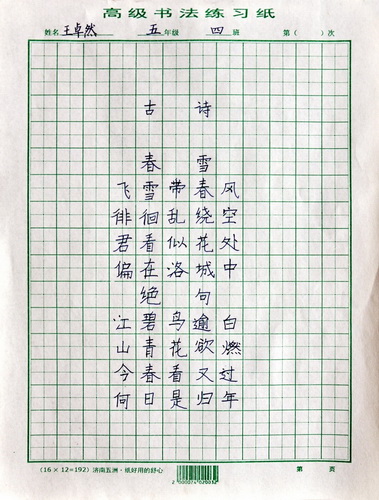 高级书法练习纸
姓名 王卓然 五年级 四班 第( )次
古诗
春雪
飞雪带春风
徘徊乱绕空
君看似花处
偏在洛城中
绝句
江碧鸟逾白
山青花欲燃
今春看又过
何日是归年
(16×12=192) 济南五洲·纸好用的舒心
第 页